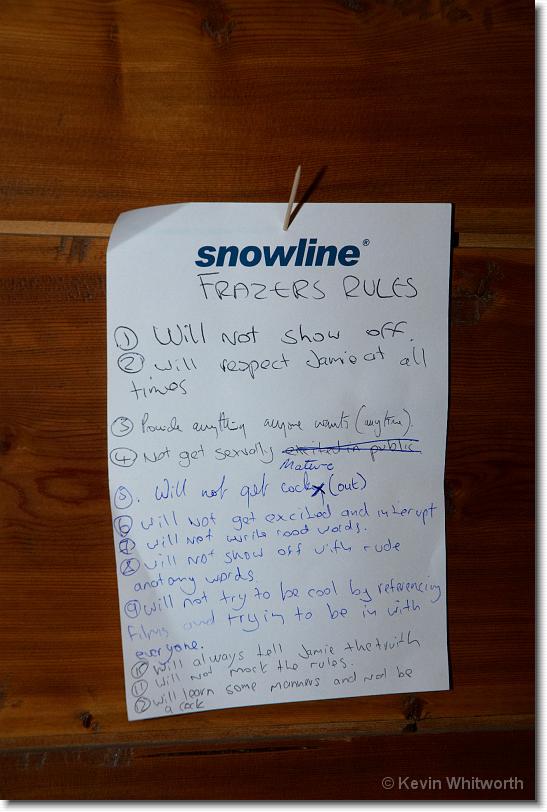 snowline®
FRAZERS RULES
① Will Not Show off.
② Will respect Jamie at all
times
③ Provide anything anyone wants (anytime).
④ Not get sexually excited in public
Mature
⑤. Will not get cocky (out)
⑥ Will Not get excited and interupt
⑦ Will Not write rood words.
⑧ Will Not show off with rude
anatamy words
⑨ Will not try to be cool by referencing
films and trying to be in with
everyone.
⑩ Will always tell Jamie the truith
⑪ Will not mock the rules.
⑫ Will learn some manners and not be
a cock
© Kevin Whitworth